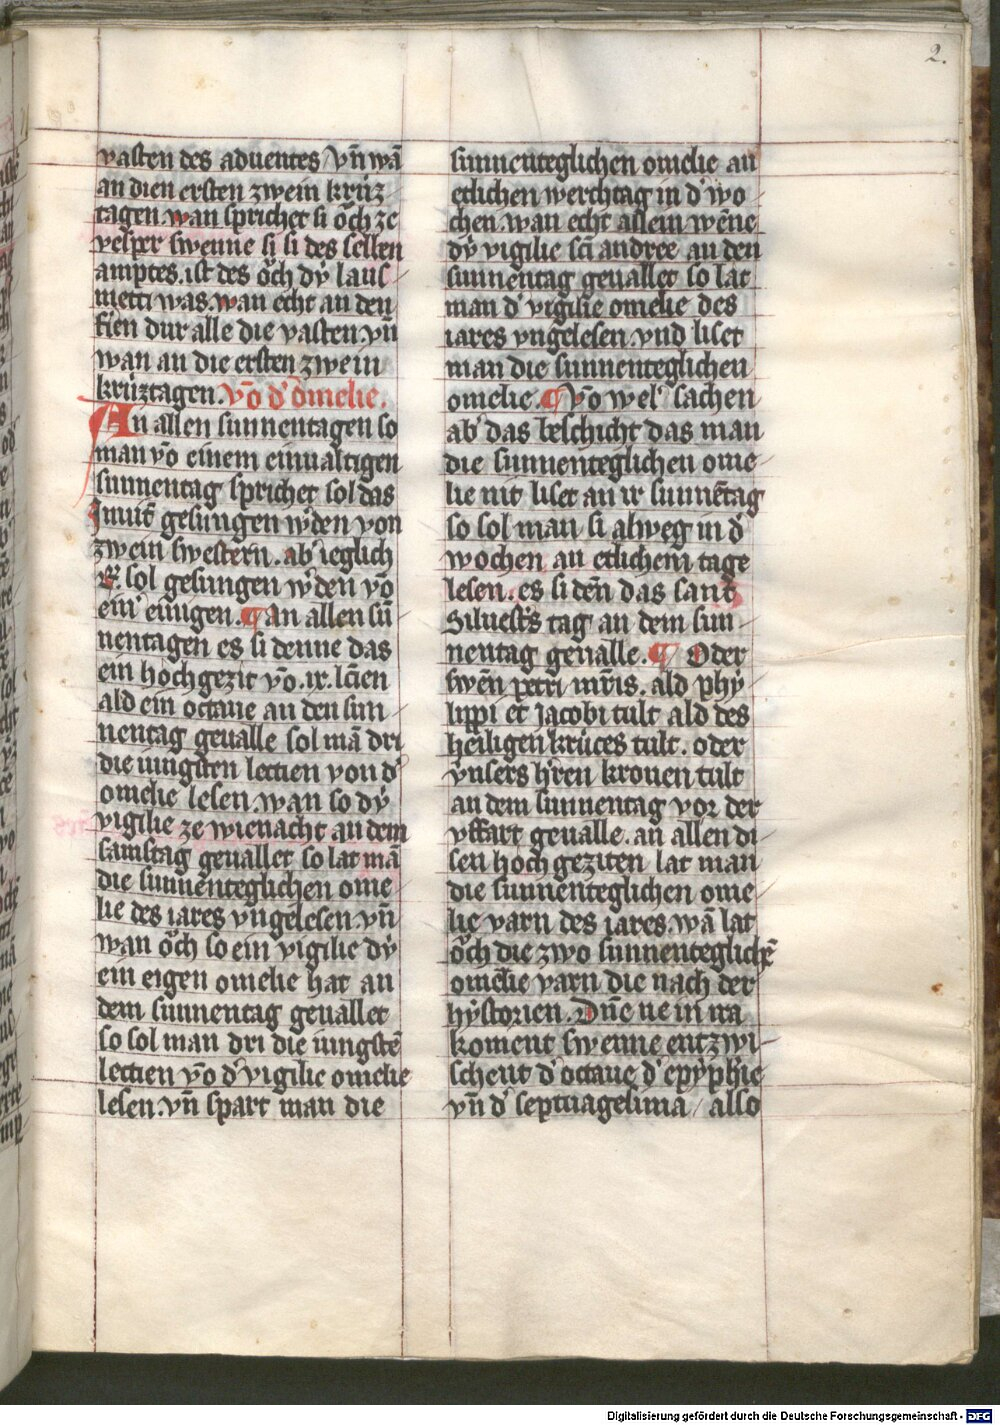 2.
vasten des aduentes / vn̄ wā
an dien ersten zwein krúz
tagen. wan sprichet si oͮch ze
vesper swenne si si des selben
amptes. ist des oͮch dv́ laus
metti was. wan echt an den
fíen dur alle die vasten. vn̄
wan an die ersten zwein
krúztagen. vō d' omelie.
An allen sunnentagen so
man vō einem einualtigen
sunnentag sprichet sol das
Inuit̄ gesungen w'den von
zwein swestern. ab' ieglich
R̄. sol gesungen w'den vō
ein' einigen. ¶ An allen sū
nentagen es si denne das
ein hochgezit vō .ix. lc̄ien
ald ein octaue an den sun
nentag geualle sol mā dri
die iungsten lectien von d'
omelie lesen. wan so dv́
vigilie ze wienacht an dem
samstag geuallet so lat mā
die sunnenteglichen ome
lie des iares vngelesen. vn̄
wan oͮch so ein vigilie dv́
ein eigen omelie hat an
dem sunnentag geuallet
so sol man dri die iungstē
lectien vō d' vigilie omelie
lesen. vn̄ spart man die
sunnenteglichen omelie an
etlichen werchtag in d' wo
chen. wan echt allein wēne
dv́ vigilie sc̄i andree an den
sunnentag geuallet so lat
man d' vigilie omelie des
iares vngelesen. vnd liset
man die sunnenteglichen
omelie. ¶ Vō wel' sachen
ab' das beschicht das man
die sunnenteglichen ome
lie nit liset an ir sunnētag
so sol man si alweg in d'
wochen an etlichem tage
lesen. es si den̄ das sant
Siluest's tag an dem sun
nentag geualle. ¶ Oder
swēn petri mr̄is. ald phy
lippi et Jacobi tult ald des
heiligen krúces tult. oder
v́nsers h'ren kronen tult
an dem sunnentag vor der
vffart geualle. an allen di
sen hochgeziten lat man
die sunnenteglichen ome
lie varn des iares. wā lat
oͮch die zwo sunnenteglichē
omelie varn die nach der
hystorien. Dn̄e ne in ira
koment swenne entzwi
schent d' octaue d' epyphīe
vn̄ d' septuagesima / also
Digitalisierung gefördert durch die Deutsche Forschungsgemeinschaft - DFG